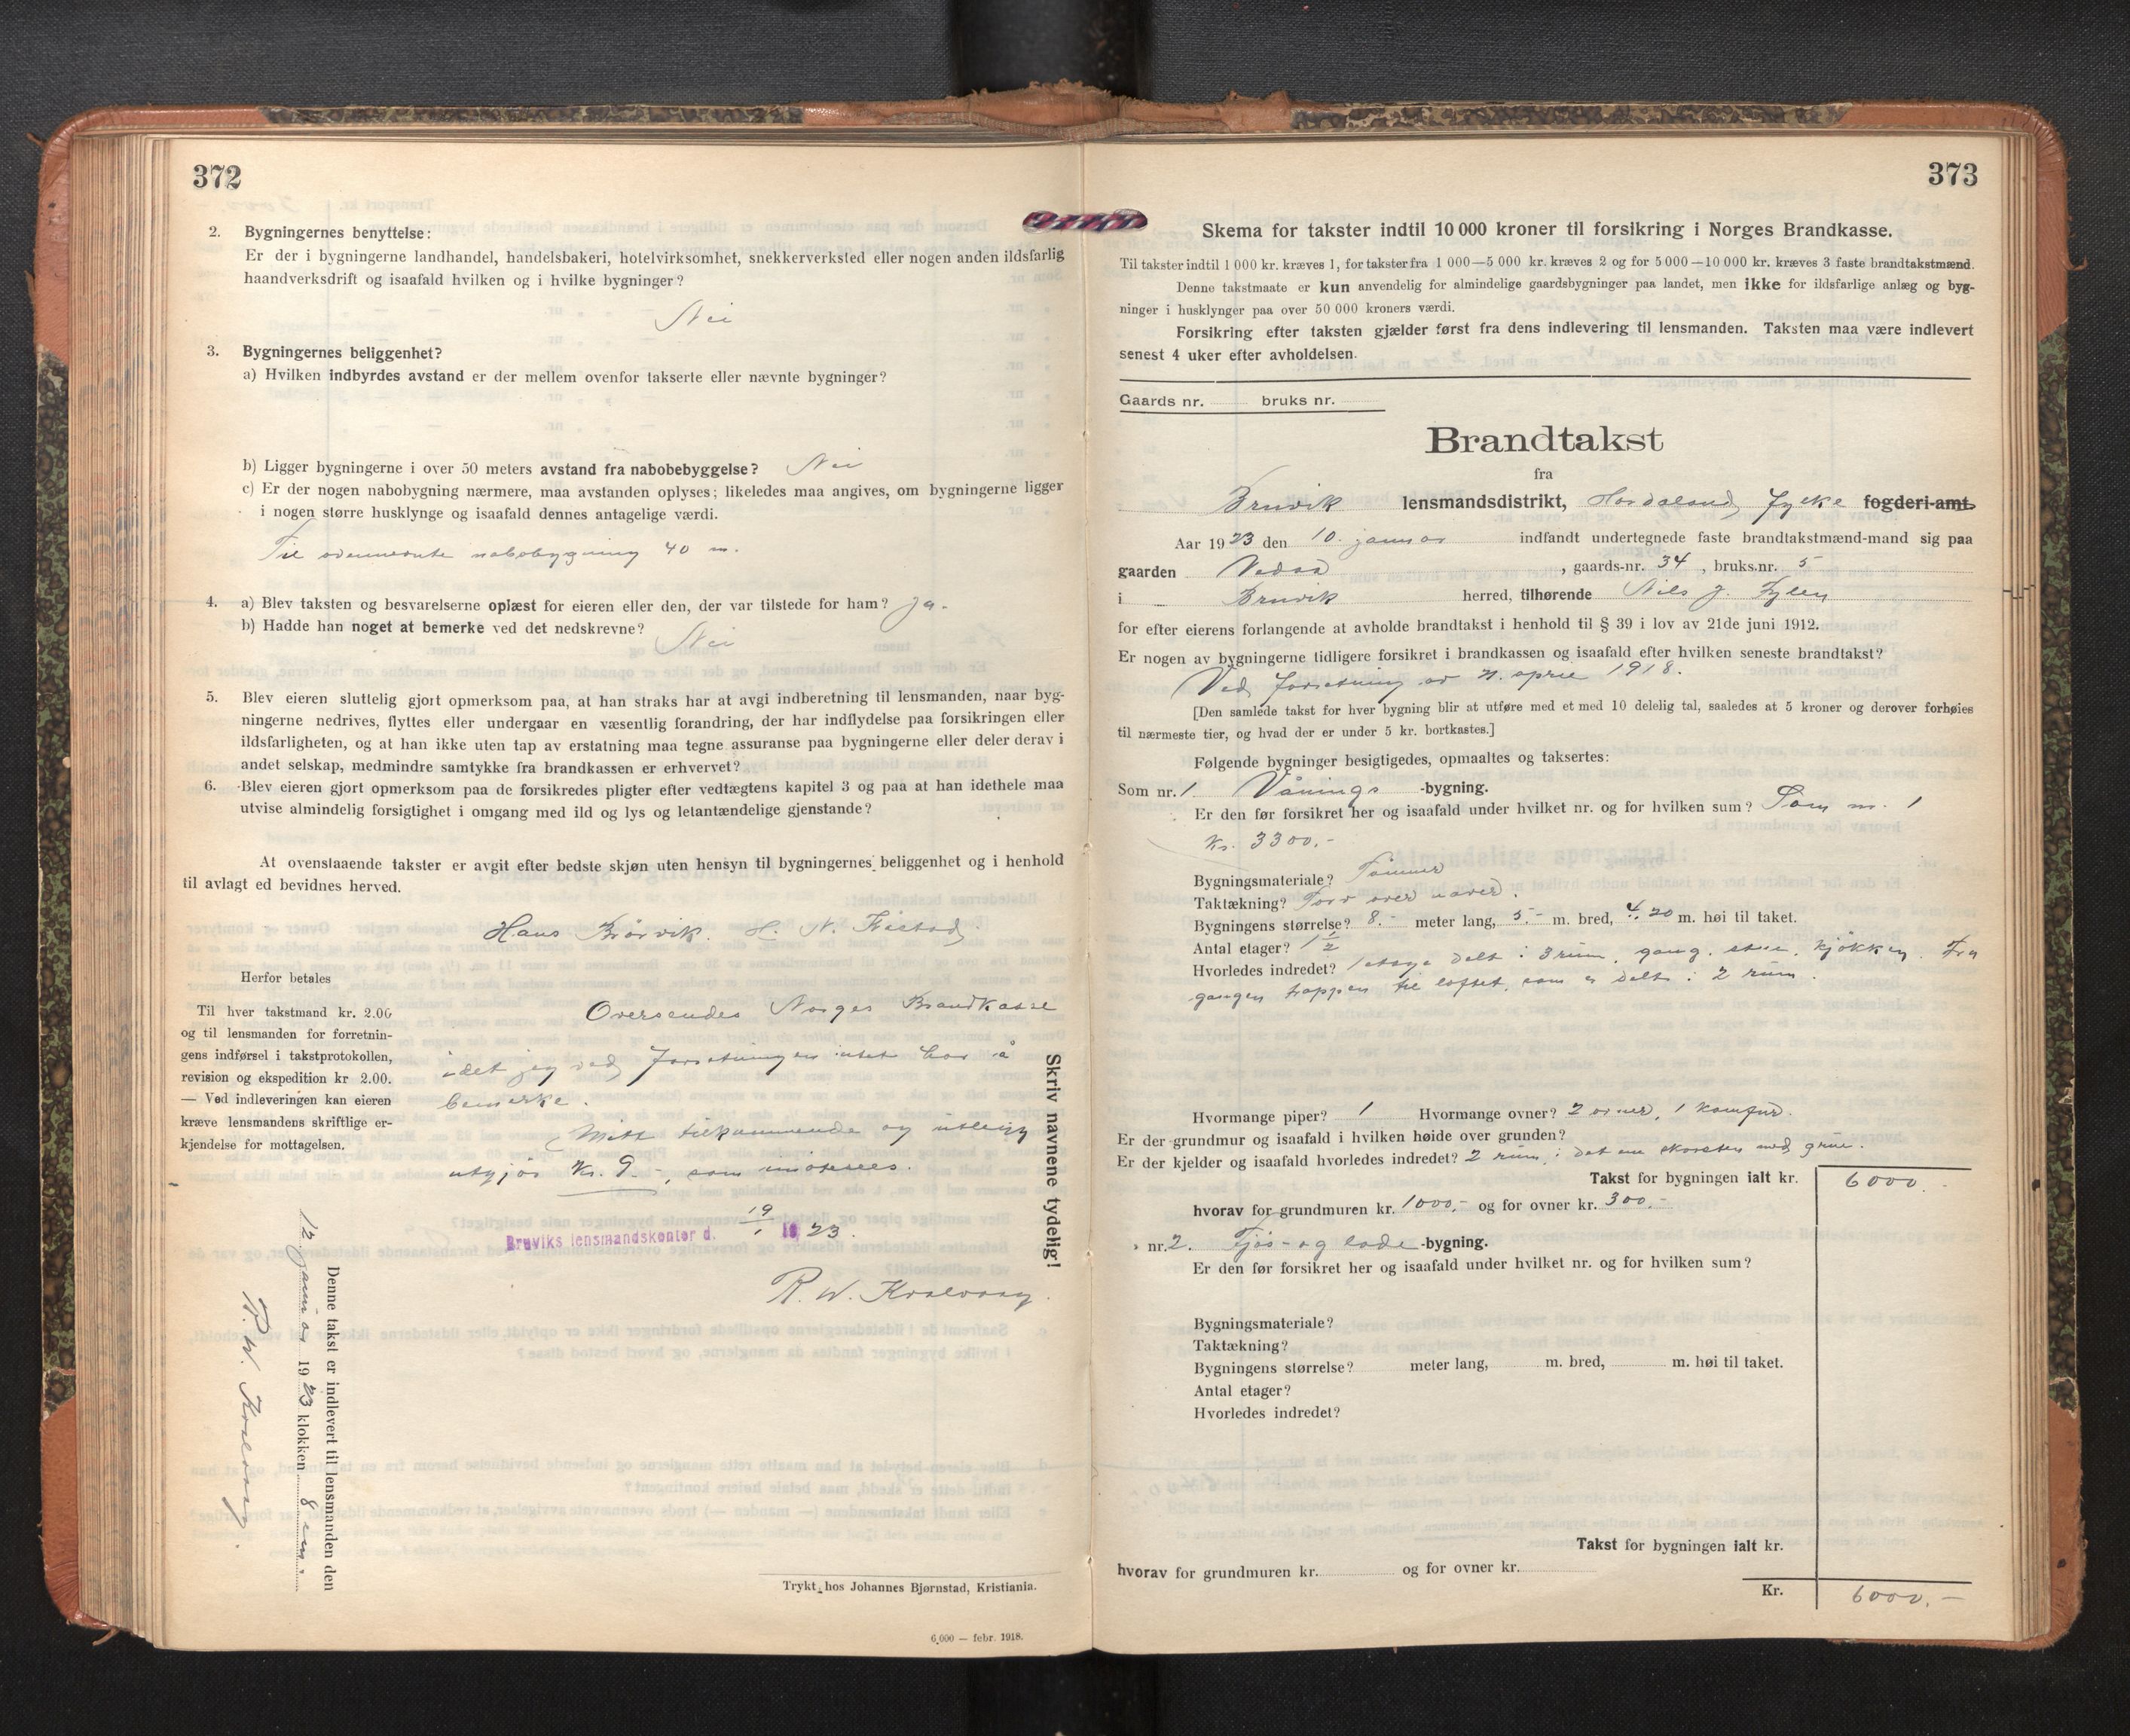 372
2. Bygningernes benyttelse:
Er der i bygningerne landhandel, handelsbakeri, hotelvirksomhet, snekkerverksted eller nogen anden ildsfarlig
haandverksdrift og isaafald hvilken og i hvilke bygninger?
Nei
3. Bygningernes beliggenhet?
a) Hvilken indbyrdes avstand er der mellem ovenfor takserte eller nævnte bygninger?
b) Ligger bygningerne i over 50 meters avstand fra nabobebyggelse? Nei
c) Er der nogen nabobygning nærmere, maa avstanden oplyses; likeledes maa angives, om bygningerne ligger
i nogen større husklynge og isaafald dennes antagelige værdi.
Til ovennevnte nabobygning 40 m.
4. a) Blev taksten og besvarelserne oplæst for eieren eller den, der var tilstede for ham? Ja.
b) Hadde han noget at bemerke ved det nedskrevne? Nei
5. Blev eieren sluttelig gjort opmerksom paa, at han straks har at avgi indberetning til lensmanden, naar byg-
ningerne nedrives, flyttes eller undergaar en væsentlig forandring, der har indflydelse paa forsikringen eller
ildsfarligheten, og at han ikke uten tap av erstatning maa tegne assuranse paa bygningerne eller deler derav i
andet selskap, medmindre samtykke fra brandkassen er erhvervet?
6. Blev eieren gjort opmerksom paa de forsikredes pligter efter vedtægtens kapitel 3 og paa at han idethele maa
utvise almindelig forsigtighet i omgang med ild og lys og letantændelige gjenstande?
At ovenstaaende takster er avgit efter bedste skjøn uten hensyn til bygningernes beliggenhet og i henhold
til avlagt ed bevidnes herved.
Hans H. N.
Herfor betales
Til hver takstmand kr. 2.00
og til lensmanden for forretnin-
gens indførsel i takstprotokollen,
revision og ekspedition kr 2.00.
— Ved indleveringen kan eieren
kræve lensmandens skriftlige er-
kjendelse for mottagelsen.
Oversendes Norges Brandkasse
idet jeg ved forretningen intet har å
bemerke.
Mitt tilkommende og utlegg
utgjør kr. 9.-, som
Bruviks lensmandskontor d. 19/1 1923.
R. W.
Skriv navnene tydelig!
Denne takst er indlevert til lensmanden den
12 januar 1923 klokken 8 em.
R. W.
Trykt hos Johannes Bjørnstad, Kristiania.
6.000 — febr. 1918.
373
Skema for takster indtil 10 000 kroner til forsikring i Norges Brandkasse.
Til takster indtil 1 000 kr. kræves 1, for takster fra 1 000—5 000 kr. kræves 2 og for 5 000—10 000 kr. kræves 3 faste brandtakstmænd.
Denne takstmaate er kun anvendelig for almindelige gaardsbygninger paa landet, men ikke for ildsfarlige anlæg og byg-
ninger i husklynger paa over 50 000 kroners værdi.
Forsikring efter taksten gjælder først fra dens indlevering til lensmanden. Taksten maa være indlevert
senest 4 uker efter avholdelsen.
Gaards nr. bruks nr.
Brandtakst
fra
Bruvik lensmandsdistrikt, Hordaland Fylke fogderi-amt.
Aar 1923 den 10. januar indfandt undertegnede faste brandtakstmænd-mand sig paa
gaarden Vedaa, gaards-nr. 34, bruks.nr. 5
i Bruvik herred, tilhørende Nils J. Fylen
for efter eierens forlangende at avholde brandtakst i henhold til § 39 i lov av 21de juni 1912.
Er nogen av bygningerne tidligere forsikret i brandkassen og isaafald efter hvilken seneste brandtakst?
Ved forretning av april 1918.
[Den samlede takst for hver bygning blir at utføre med et med 10 delelig tal, saaledes at 5 kroner og derover forhøies
til nærmeste tier, og hvad der er under 5 kr. bortkastes.]
Følgende bygninger besigtigedes, opmaaltes og taksertes:
Som nr. 1 Vånings -bygning.
Er den før forsikret her og isaafald under hvilket nr. og for hvilken sum? Som nr. 1
kr. 3300.-
Bygningsmateriale? Tømmer
Taktækning? Torv over næver.
Bygningens størrelse? 8.- meter lang, 5.- m. bred, 4.20 m. høi til taket.
Antal etager? 1 1/2
Hvorledes indredet? 1 etage delt i 3 rum, gang, stue, kjøkken. Fra
gangen trappen til loftet, som er delt i 2 rum.
Hvormange piper? 1 Hvormange ovner? 2 ovner, 1 komfur.
Er der grundmur og isaafald i hvilken høide over grunden?
Er der kjelder og isaafald hvorledes indredet? 2 rum, i det ene skorsten med grue.
Takst for bygningen ialt kr. 6000.-
hvorav for grundmuren kr. 1000,- og for ovner kr. 300.-
» nr. 2. Fjøs- og lade -bygning.
Er den før forsikret her og isaafald under hvilket nr. og for hvilken sum?
Bygningsmateriale?
Taktækning?
Bygningens størrelse? meter lang, m. bred, m. høi til taket.
Antal etager?
Hvorledes indredet?
Takst for bygningen ialt kr.
hvorav for grundmuren kr. og for ovner kr.
Kr. 6000.-